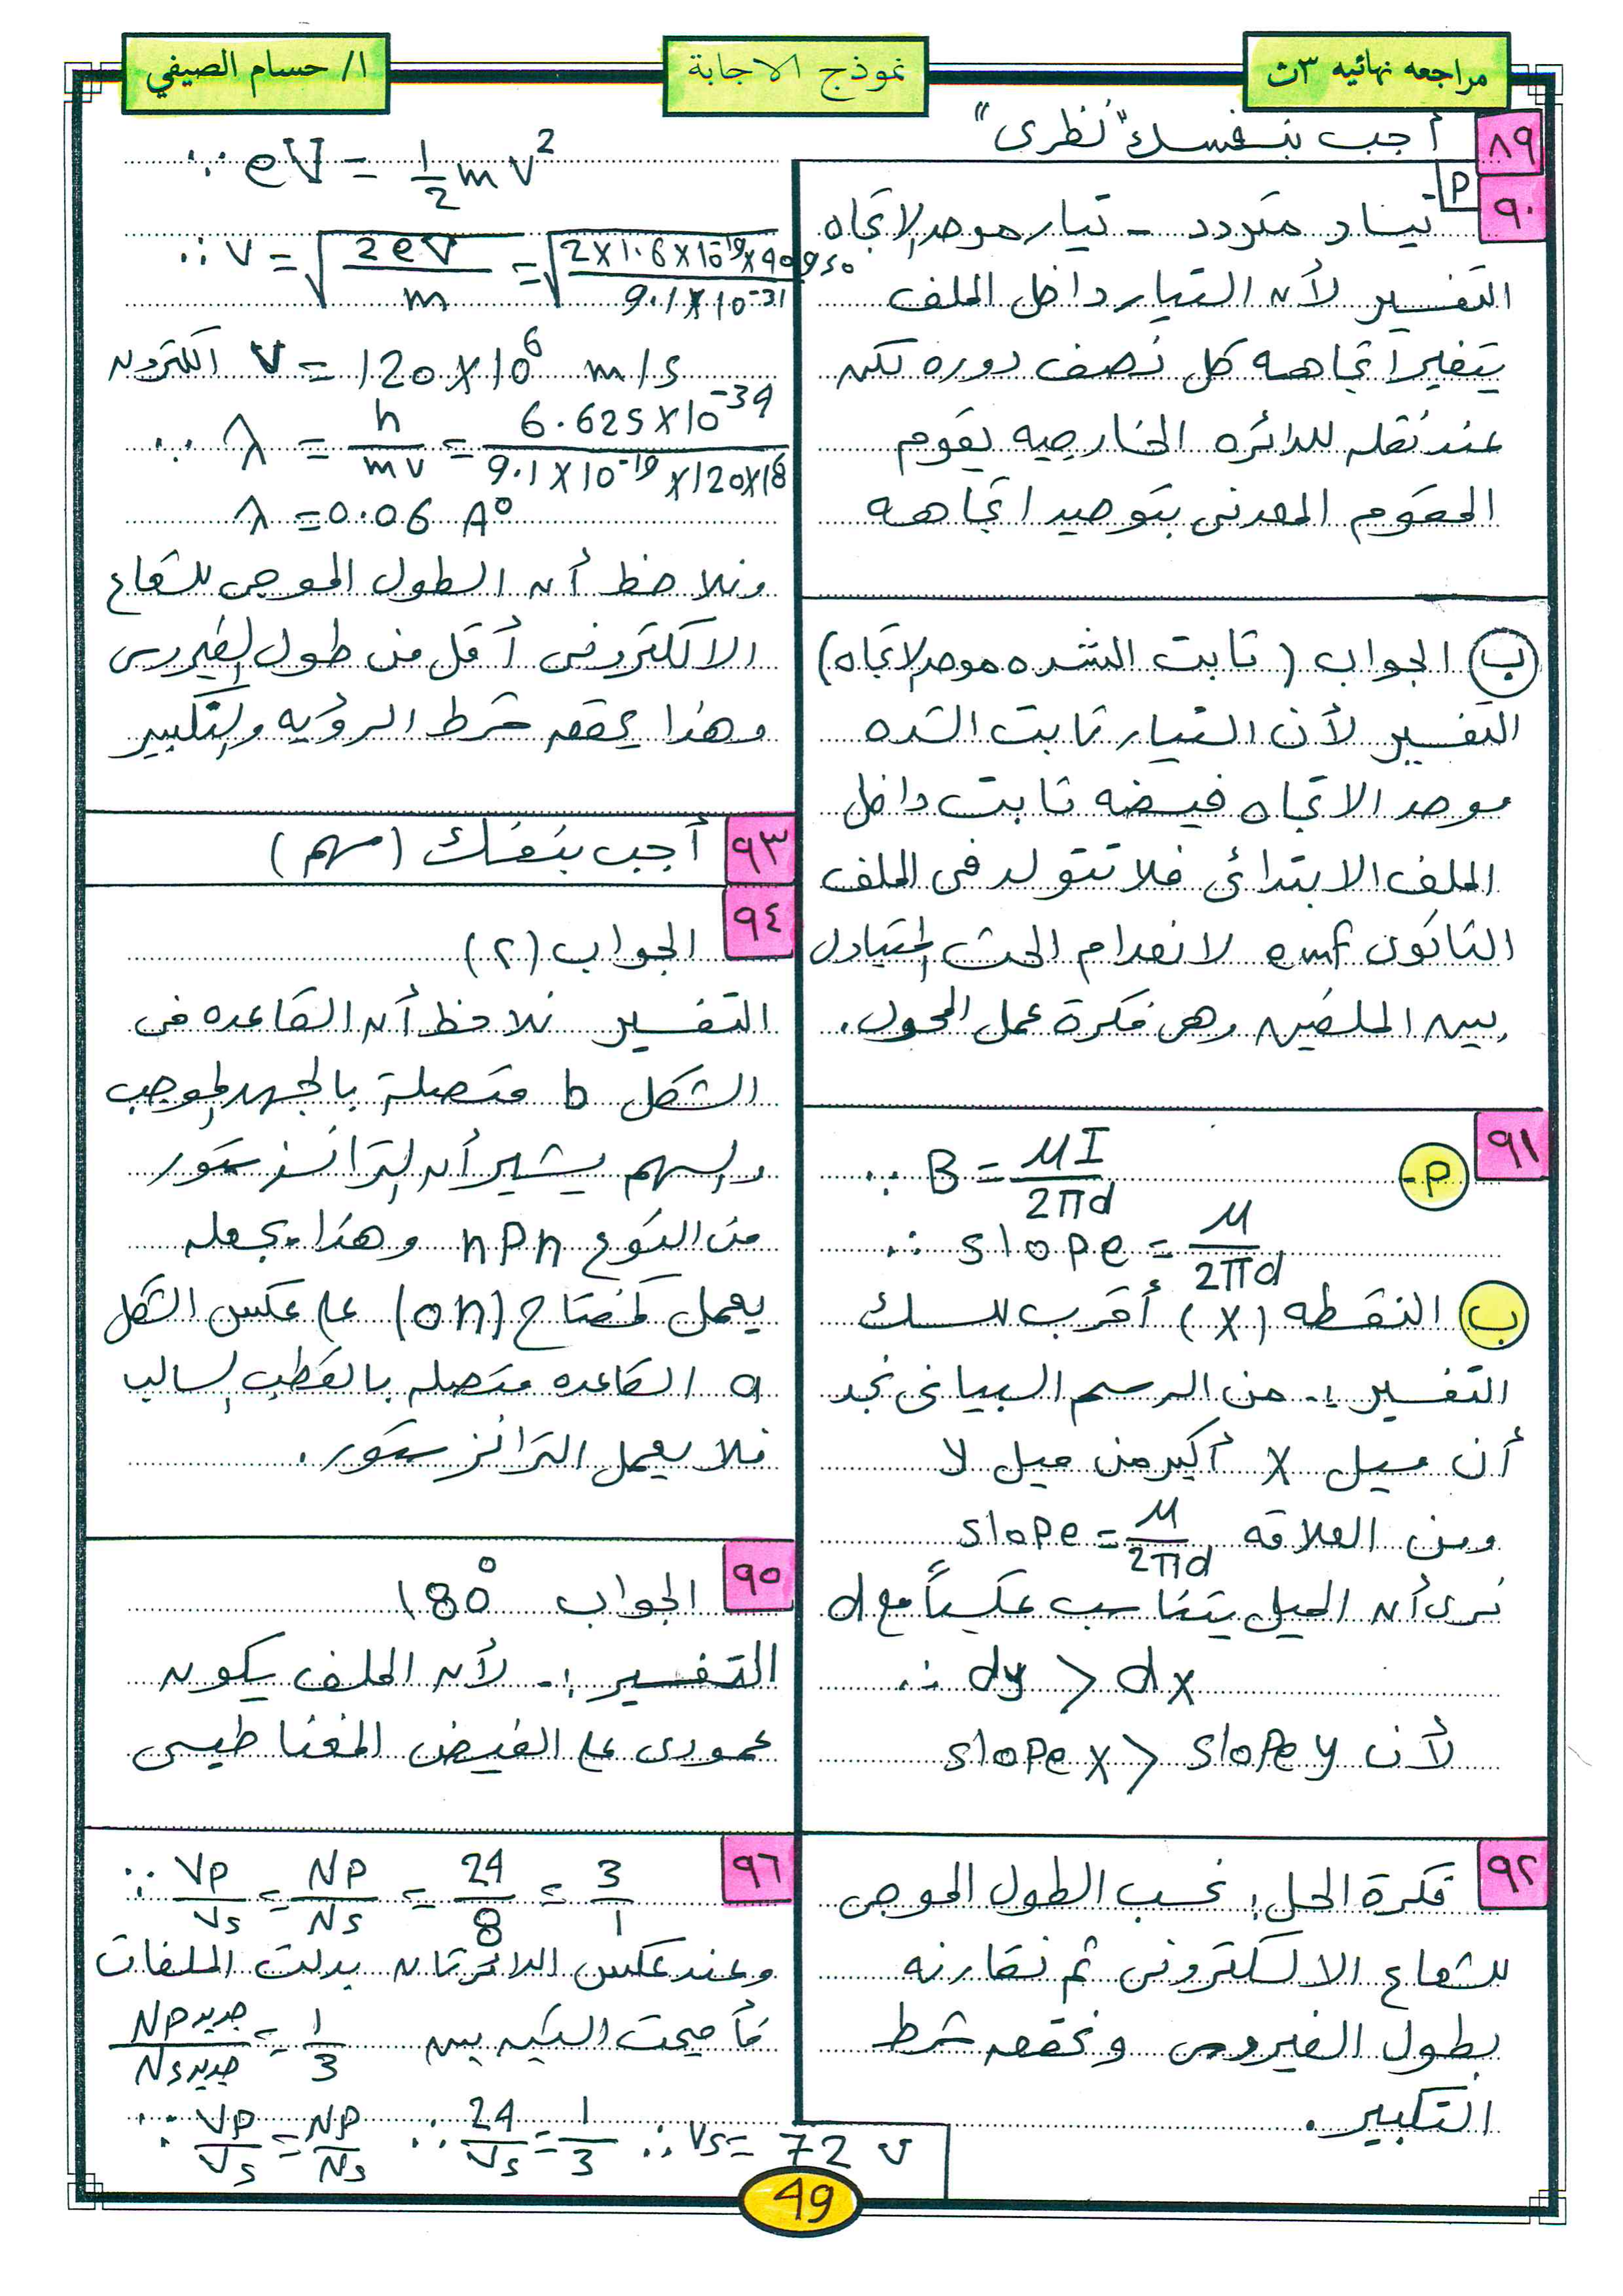 مراجعه نهائيه ٣ث
نموذج الاجابة
ا/ حسام الصيفي
٨٩ أجب بنفسك "نظرى"
٩٠ P
تيار متردد - تيار موحد الاتجاه
التفسير لأن التيار داخل الملف
يتغير اتجاهه كل نصف دوره لكن
عند نقله للدائره الخارجيه يقوم
المقوم المعدنى بتوحيد اتجاهه
ب الجواب (ثابت الشده موحد الاتجاه)
التفسير لأن التيار ثابت الشده
موحد الاتجاه فيضه ثابت داخل
الملف الابتدائى فلا تتولد فى الملف
الثانوى emf لانعدام الحث المتبادل
بين الملفين وهى فكرة عمل المحول.
٩١
P- ∵ B = μI / 2πd
∴ slope = μ / 2πd
ب النقطه (x) أقرب للسلك
التفسير :- من الرسم البيانى نجد
أن ميل x أكبر من ميل y
ومن العلاقه slope = μ / 2πd
نرى أن الميل يتناسب عكسياً مع d
∴ dy > dx
لأن slope x > slope y
٩٢ فكرة الحل: نحسب الطول الموجى
للشعاع الالكترونى ثم نقارنه
بطول الفيروس ونحقق شرط
التكبير.
∵ eV = 1/2 m v²
∴ v = √(2eV / m) = √(2×1.6×10⁻¹⁹×40950 / 9.1×10⁻³¹)
v = 120×10⁶ m/s الكترون
∵ λ = h / mv = 6.625×10⁻³⁴ / 9.1×10⁻¹⁹×120×10⁶
λ = 0.06 A°
ونلاحظ أن الطول الموجى للشعاع
الالكترونى أقل من طول الفيروس
وهذا يحقق شرط الرؤيه والتكبير
٩٣ أجب بنفسك (مهم)
٩٤ الجواب (٢)
التفسير نلاحظ أن القاعده فى
الشكل b متصلة بالجهد الموجب
والسهم يشير أن الترانزستور
من النوع npn وهذا يجعله
يعمل كمفتاح (on) على عكس الشكل
a القاعده متصله بالقطب السالب
فلا يعمل الترانزستور.
٩٥ الجواب 180°
التفسير :- لأن الملف يكون
عمودى على الفيض المغناطيسى
٩٦ ∵ Vp / Vs = Np / Ns = 24 / 8 = 3 / 1
وعند عكس الدائرتان بدلت الملفات
فأصبحت النسبه بين Np جديد / Ns جديد = 1 / 3
∵ Vp / Vs = Np / Ns ∴ 24 / Vs = 1 / 3 ∴ Vs = 72 v
49